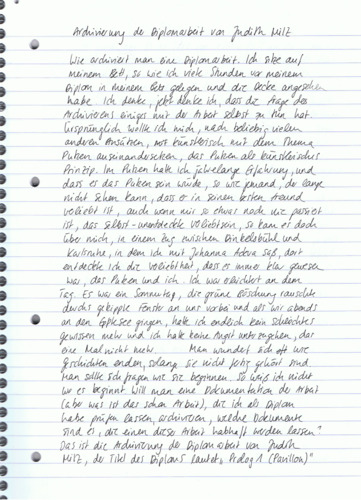 Archivierung der Diplomarbeit von Judith Milz
Wie archiviert man eine Diplomarbeit. Ich sitze auf
meinem Bett, so wie ich viele Stunden vor meinem
Diplom in meinem Bett gelegen und die Decke angesehen
habe. Ich denke, jetzt denke ich, dass die Frage des
Archivierens einiges mit der Arbeit selbst zu tun hat.
Ursprünglich wollte ich mich, nach beliebig vielen
anderen Ansätzen, rein künstlerisch mit dem Thema
Putzen auseinandersetzen, das Putzen als künstlerisches
Prinzip. Im Putzen habe ich jahrelange Erfahrung, und
dass es das Putzen sein würde, so wie jemand, der lange
nicht sehen kann, dass er in seinen besten Freund
verliebt ist, auch wenn mir so etwas noch nie passiert
ist, das selbst-unentdeckte Verliebtsein, so kam es doch
über mich, in einem Zug zwischen Dinkelsbühl und
Karlsruhe, in dem ich mit Johanna saß, dort
entdeckte ich die Verliebtheit, dass es immer klar gewesen
war, das Putzen und ich. Ich war erleichtert an dem
Tag. Es war ein Sonntag, die grüne Böschung rauschte
durchs gekippte Fenster an uns vorbei und als wir abends
an den Epplesee gingen, hatte ich endlich kein schlechtes
Gewissen mehr und ich hatte keine Angst unterzugehen, das
eine Mal nicht mehr. Man wundert sich oft wie
Geschichten enden, solange sie nicht fertig gehört sind
man sollte sich fragen wie sie beginnen. So weiß ich nicht
wo es beginnt will man eine Dokumentation der Arbeit
(aber was ist das schon Arbeit), die ich als Diplom
habe prüfen lassen, archivieren, welche Dokumente
sind es, die einen diese Arbeit habhaft werden lassen?
Das ist die Archivierung der Diplomarbeit von Judith
Milz, der Titel des Diploms lautet „Prolog 1 (Pavillon)"